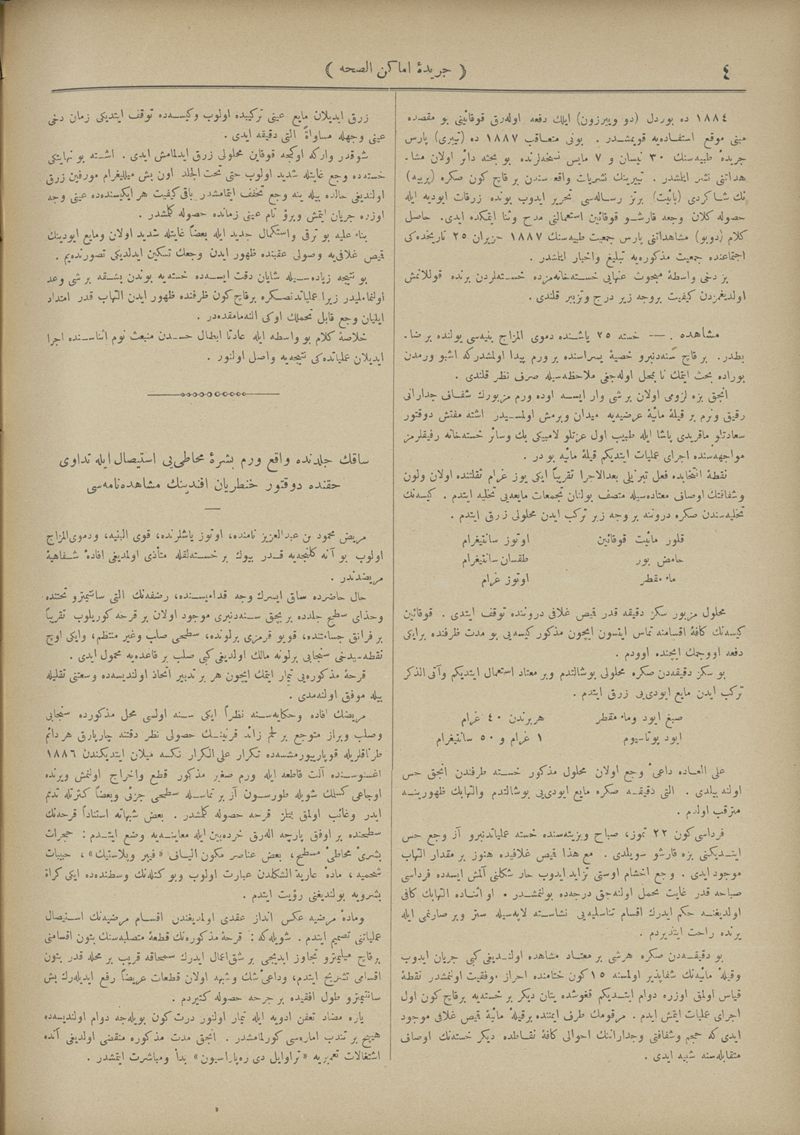 ( جريدهٔ اماكن الصحه )
٤
١٨٨٤ ده بوردل (دو ويبرزون) ايلك دفعه اوله‌رق قوقائينى بو مقصده
مبنى موقع استفاده‌يه قويمشدر . بونى متعاقب ١٨٨٧ ده (تيبرى) پارس
جريدهٔ طبيه‌سنك ٣٠ نيسان و ٧ مايس نسخه‌لرنده بو بحثه دائر اولان مشا-
هداتنى نشر ايلمشدر . تيبرينك نشريات واقعه سندن بر قاچ كون صكره (پربيه)
نك شاكردى (بائيت) برتز رساله‌سى تحرير ايدوب بونده زرقات ايوديه ايله
حصوله كلان وجعه قارشو قوقائين استعمالنى مدح وثنا ايتمكده ايدى. حاصل
كلام (دوبو) مشاهداتنى پارس جمعيت طبيه‌سنك ١٨٨٧ حزيران ٢٥ تاريخنده‌كى
اجتماعنده جمعيت مذكوره‌يه تبليغ واخبار ايلمشدر .
بز دخى واسطهٔ مبحوث عنهايى خسته‌خانه‌مزده خسته‌لردن برنده قوللانمش
اولديغمزدن كيفيت بروجه زير درج وتزبير قلندى .
مشاهده . — خسته ٢٥ ياشنده دموى المزاج بنيه‌سى يولنده بر ذا-
تدر. بر قاچ سنه‌دنبرو خصيهٔ يسراسنده بر ورم پيدا اولمشدركه اشبو ورمدن
بوراده بحث ايتمك نا بمحل اوله‌جغى ملاحظه‌سيله صرف نظر قلندى .
انجق بزه لزومى اولان بر شى وار ايسه اوده ورم مزبورك شفافى جدارانى
رقيق ونرم بر قيلهٔ مائيهٔ عرضيه‌يه ميدان ويرمش اولمسيدر اشته مفتش دوقتور
سعادتلو ماقريدى پاشا ايله طبيب اول عزتلو لامبيكى بك وسائر خسته‌خانه رفيقلرمز
مواجهه‌سنده اجراى عمليات ايتديكم قيلهٔ مائيه بو در .
نقطهٔ انتخابده فعل تبزيلى بعد‌الاجرا تقريباً ايكى يوز غرام ثقلتنده اولان ولون
وشفافتك اوصافى معتاده‌سيله متصف بولنان تجمعات مايعه‌يى تخليه ايتدم . كيسه‌نك
تخليه‌سندن صكره دروننه بر وجه زير تركب ايدن محلولى زرق ايتدم .
قلور مائيت قوقائين اوتوز سانتيغرام
حامض بور طقسان سانتيغرام
ماء مقطر اوتوز غرام
محلول مزبور سكز دقيقه قدر قيص غلافى دروننده توقف ايتدى . قوقائين
كيسه‌نك كافهٔ اقسامنه تماس ايتسون ايچون مذكور كيسه‌يى بو مدت ظرفنده بر ايكى
دفعه اووجمك ايچنده اوودم .
بو سكز دقيقه‌دن صكره محلولى بوشالتدم وبر معتاد استعمال ايتديكم وآتى الذكر
تركب ايدن مايع ايودى‌يى زرق ايتدم .
صبغ ايود وماء مقطر هر برندن ٤٠ غرام
ايود پوتاسيوم ١ غرام و ٥٠ سانتيغرام
على العاده داعئ وجع اولان محلول مذكور خسته طرفندن انجق حس
اولنه‌بيلدى . التى دقيقه صكره مايع ايودى‌يى بوشالتدم والتهابك ظهورينه
مترقب اولدم .
فرداسى كون ٢٢ تموز، صباح ويزيته‌سنده خسته عملياتدنبرو آز وجع حس
ايتديكنى بزه قارشو سويلدى . مع هذا قيص غلافيده هنوز بر مقدار التهاب
موجود ايدى . وجع اخشام اوستى تزايد ايدوب حار شكلنى آلمش ايسه‌ده فرداسى
صباحه قدر غايت تحمل اولنه‌جق درجه‌ده بولنمشدر . او اثناده التهابك كافى
اولديغنه حكم ايدرك اقسام تناسليه‌يى نشاسته لاپه‌سيله ستر وبر صارغى ايله
يرنده راحت ايتديردم .
بو دقيقه‌دن صكره هر شى بر معتاد مشاهده اولنديغى كبى جريان ايدوب
وقيلهٔ مائيه‌نك شفاپذير اولمسنه ١٥ كون ختامنده احراز موفقيت اولنمشدر نقطهٔ
قياس اولمق اوزره دوام ايتديكم قغوشده يتان ديكر بر خسته‌يه بر قاچ كون اول
اجراى عمليات ايتمش ايدم . مرقومك طرف ايمننده بر قيلهٔ مائيهٔ قيص غلافى موجود
ايدى كه حجم وشفافتى وجدارانك احوالى كافهٔ نقاطده ديكر خسته‌نك اوصافى
متقابله‌سنه شبيه ايدى .
زرق ايديلان مايع عينى تركيبده اولوب وكيسه‌ده توقف ايتديكى زمان دخى
عينى وجهله مساواةً التى دقيقه ايدى .
شوقدر وار كه اوكجه قوقاين محلولى زرق ايدلمامش ايدى . اشته بو نهايتكى
خسته‌ده وجع غايتله شديد اولوب حتى تحت الجلد اون بش ميلليغرام مورفين زرق
اولنديغى حالده بيله ينه وجع تخفف ايتمامشدر باقى كيفيت هر ايكيسنده‌ده عينى وجه
اوزره جريان ايتمش وبرؤ تام عينى زمانده حصوله كلمشدر .
بناءً عليه بو ترقى واستكمال جديد ايله بعضاً غايتله شديد اولان ومايع ايودينك
قيص غلافى‌يه وصولى عقبنده ظهور ايدن وجعك تسكين ايدلديكى تصورنده‌يم .
بو نتيجه زياده‌سيله شايان دقت ايسه‌ده خسته‌يه بوندن بشقه بر شى وعد
اولنماملیدر زيرا عملياتدنصكره بر قاچ كون ظرفنده ظهور ايدن التهاب قدر امتداد
ايليان وجع قابل تحملك اوكى النه‌مامقده‌در .
خلاصهٔ كلام بو واسطه ايله عادتا ابطال حسدن منبعث نوم اثناسنده اجرا
ايديلان عملياته‌كى نتيجه‌يه واصل اولنور .
ساقك جلدنده واقع ورم بشرهٔ مخاطى‌يى استيصال ايله تداوى
حقنده دوقتور خنطريان افندينك مشاهده‌نامه‌سى
مريض محمود بن عبدالعزيز نامنده، اوتوز ياشلرنده، قوى البنيه، ودموى‌المزاج
اولوب بو آنه كلنجه‌يه قدر بيوك بر خسته‌لقله متأذى اولمديغى افادهٔ شفاهيهٔ
مريضدندر .
حال حاضرده ساق ايسرك وجه قداميسنده، رضفه‌نك التى سانتيمترو تحتنده
وحذاى سطح جلدده بر بچق سنه‌دنبرى موجود اولان بر قرحه كوريلوب تقريباً
بر فرانق جسامتنده، قويو قرمزى برلونده، سطحى صلب وغير منتظم، وايكى اوچ
نقطه‌سيدخى سنجابى برلونه مالك اولديغى كبى صلب بر قاعده‌يه محمول ايدى .
قرحهٔ مذكوره‌يى تيمار ايتمك ايچون هر بر تدبير اتخاذ اولنديسه‌ده وسعتنى تقليله
بيله موفق اولنمه‌دى .
مريضك افاده وحكايه‌سنه نظراً ايكى سنه اولسى محل مذكورده سنجابى
وصلب وبراز متوجع بر لحم زائد قرنينك حصولى نظر دقتنه چارپارق هر دائم
طرناقلريله قوپاريوررمشسه‌ده تكرار على‌الكرار نكسه ميلان ايتديكندن ١٨٨٦
اغستوسنده آلت قاطعه ايله ورم صغير مذكور قطع واخراج اولنمش ويرنده
اوجاعى كسلك شويله طورسون آز بر تماسله سطحى جزئى وبعضاً كثرتله تدمّم
ايدر وغائب اولمق بيلمز قرحه حصوله كلمشدر . بعض شبهاته استناداً قرحه‌نك
سطحنده بر اوفق پارچه آله‌رق خرده‌بين ايله معاينه‌يه وضع ايتدم : حجرات
بشرئ مخاطئ مسطح، بعض عناصر مكون اليافى «فيبر وبلاستيك»، حبيبات
شحميه، مادهٔ عارية الشكلدن عبارت اولوب وبو كتله‌نك وسطنده‌ده ايكى كراة
بشرويه بولنديغنى رؤيت ايتدم .
ومادهٔ مرضيه عكس انداز عقدى اولمديغندن اقسام مرضيه‌نك استيصال
عملياتنى تصميم ايتدم . شويله‌كه : قرحهٔ مذكوره‌نك قطعهٔ متصلبه‌سنك بتون اقسامنى
بر قاچ ميليمترو تجاوز ايديجى بر شق اعمال ايدرك سمحاقه قريب بر محله قدر بتون
اقسامى تشريح ايتدم، وداعئ شك وشبهه اولان قطعات عريضاً رفع ايديله‌رك بش
سانتيمترو طول افقيده بر جرحه حصوله كتيردم .
ياره مضاد تعفن ادويه ايله تيمار اولنور درت كون بويله‌جه دوام اولنديسه‌ده
هيچ بر تندب اماره‌سى كورلمامشدر . انجق مدت مذكوره منقضى اولديغى آنده
اشتغالات تعميريه «تراوايل دى ره‌پاراسيون» بدأ ومباشرت ايتمشدر .